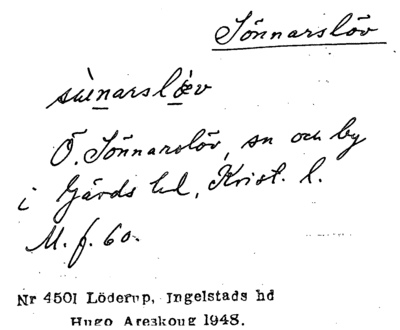 Sönnarslöv
Ö. Sönnarslöv, sn och by
i Gärds hd, Krist. l.
M. f. 60.
Nr 4501 Löderup, Ingelstads hd
Hugo Areskoug 1948.